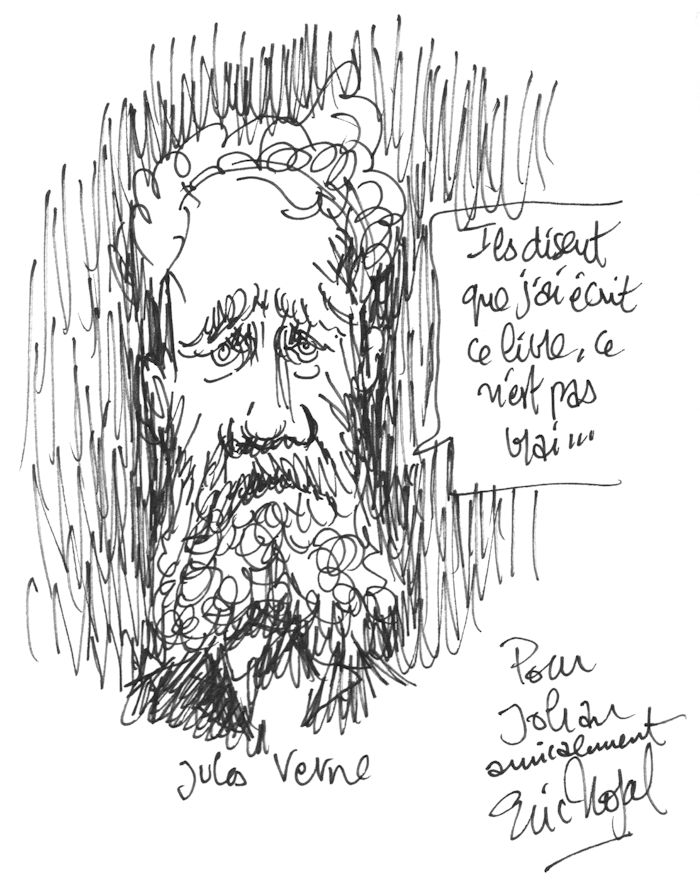 Ils disent
que j'ai écrit
ce livre, ce
n'est pas
vrai...
Jules Verne
Pour
Johan
amicalement
Eric Nosal